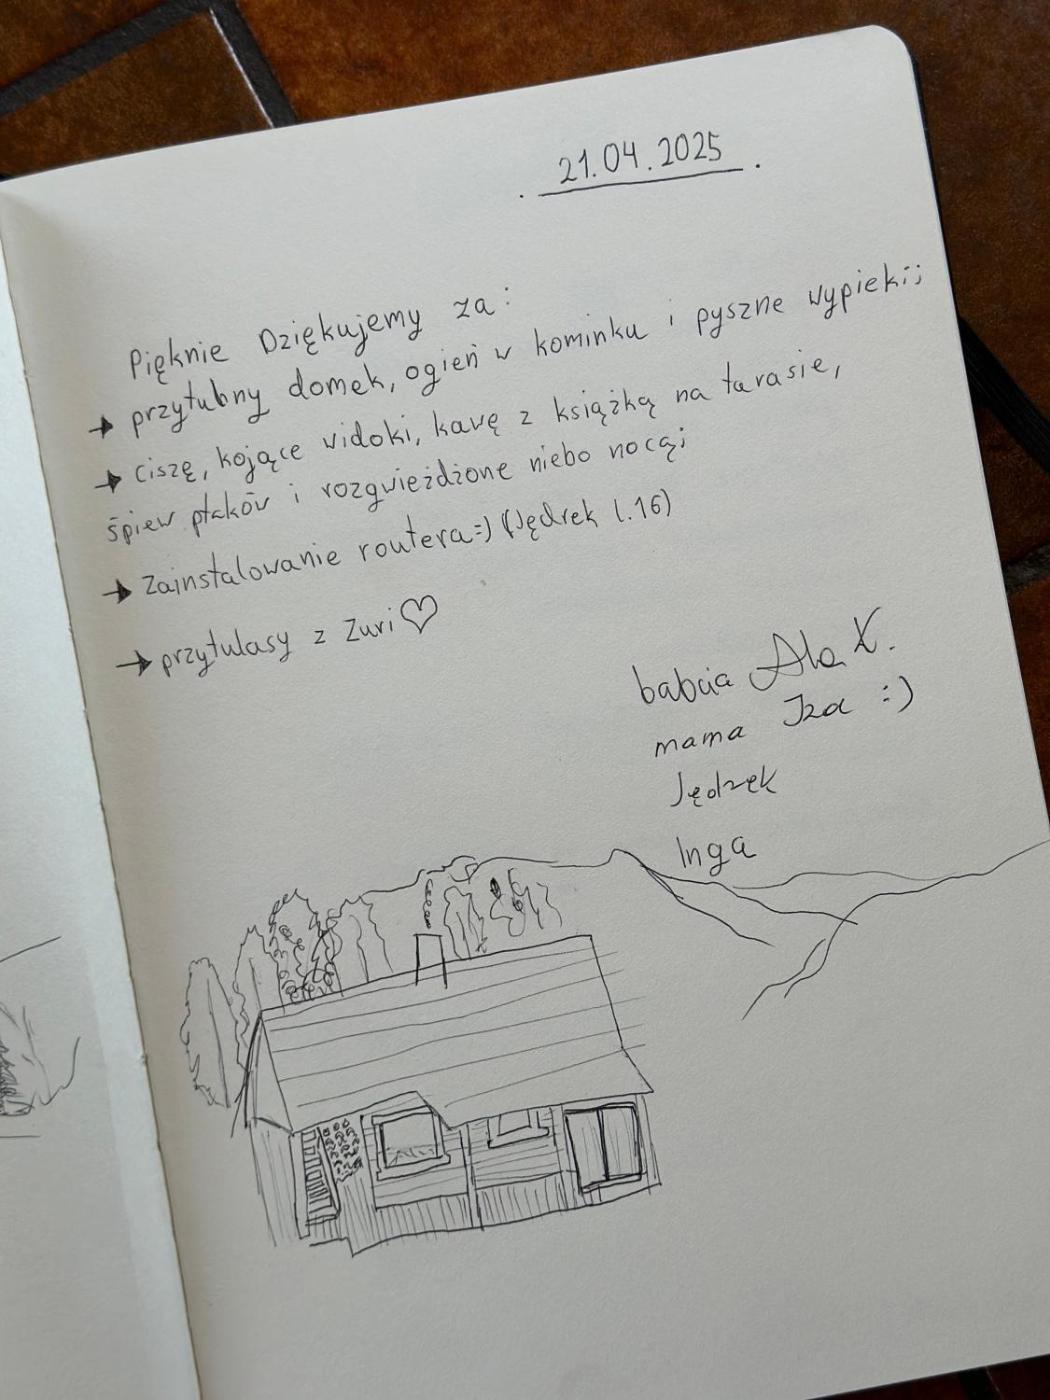 . 21.04.2025 .
Pięknie Dziękujemy za:
→ przytulny domek, ogień w kominku i pyszne wypieki;
→ ciszę, kojące widoki, kawę z książką na tarasie,
śpiew ptaków i rozgwieżdżone niebo nocą;
→ Zainstalowanie routera=) (Jędrek l.16)
→ przytulasy z Zuri ♡
babcia Ala K.
mama Iza :)
Jędrek
Inga